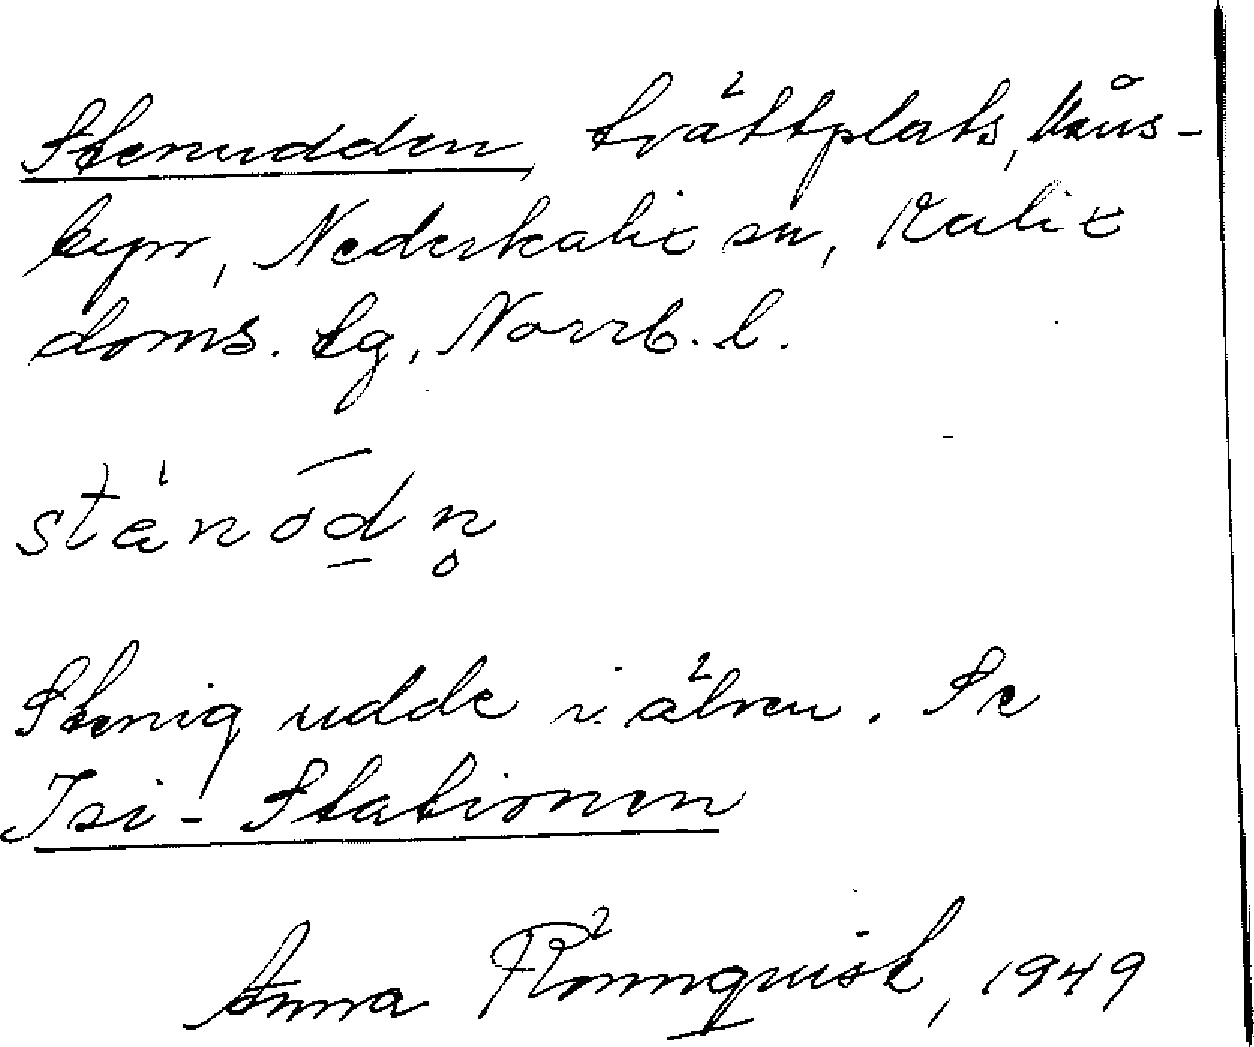 Stenudden, tvättplats, Mås-
byn, Nederkalix sn, Kalix
doms. tg, Norrb. l.
stänōd̲n̥
Stenig udde i älven. Se
Isi-Stationen
Anna Rönnquist, 1949